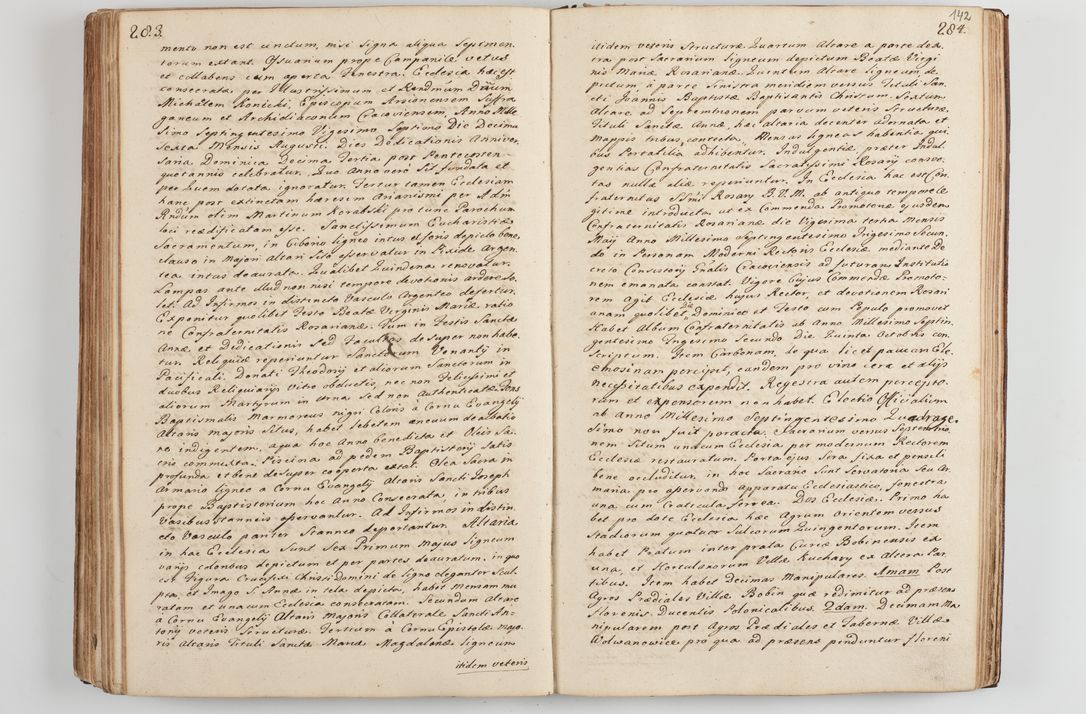 283.
mento non est unctum, nisi Signa aliqua Septimen
torum extant. Ossuarium prope Campanile vetus
et collabens cum aperta Fenestra. Ecclesia hac est
consecrata per Illustrissimum et Rendmum Dnum
Michaelem Kunicki, Episcopum Arsionensem Suffra
ganeum et Archidiaconum Cracoviensem, Anno Mille
Simo Septingentesimo Vigesimo Septimo Die Decima
Sexta Mensis Augusti. Dies Dedicationis Anniver
Saria Dominica Decima Tertia post Pentecosten
quotannis celebratur. Quo Anno vero Sit fundata et
per Quem dotata ignoratur. Fertur tamen Ecclesiam
hanc post extinctam hæresim Arianismi per Adm
Rndum olim Martinum Koralski pro tunc Parochum
loci reædificatam esse. Sanctissimum Eucharistiæ
Sacramentum, in Ciborio ligneo intus et foris depicto bene
clauso in Majori Altari Sito asservatur in Pixide Argen
tea intus deaurata. Qualibet Quindena renovatur.
Lampas ante illud non nisi tempore devotionis ardere so
let. Ad Infirmos in distincto Vasculo Argenteo defertur.
Exponitur quolibet Festo Beatæ Virginis Mariæ ratio
ne Confraternitatis Rosarianæ. Tum in Festis Sanctæ
Annæ et Dedicationis Sed Facultas desuper non habe
tur. Reliquiæ reperiuntur Sanctorum Venantij in
Pacificali. Donati Theodorij et aliorum Sanctorum in
duobus Reliquiarijs Vitro obductis, nec non Felicissimi et
aliorum Martyrum in Urna Sed non Authenticatæ. Fons
Baptismalis Marmoreus nigri Coloris a Cornu Evangelij
Altaris majoris Situs, habet lebetem æneum dealbatio
ne indigentem, aqua hoc Anno benedicta et Oleis Sa
cris commixta, Piscina ad pedem Baptisterij Satis
profunda et bene desuper cooperta extat. Olea Sacra in
Armario ligneo a Cornu Evangelij Altaris Sancti Joseph
prope Baptisterium hoc Anno Consecrata, in tribus
Vasibus Stanneis asservantur. Ad Infirmos in distin
cto Vasculo pariter Stanneo deportantur. Altaria
in hac Ecclesia Sunt Sex Primum Majus ligneum
varijs coloribus depictum et per partes deauratum, in quo
est Figura Crucifixi Christi Domini de ligno eleganter Scul
pta, et Imago S. Annæ in tela depicta, habet Mensam mu
ratam et una cum Ecclesia consecratam. Secundum Altare
a Cornu Evangelij Altaris Majoris Collaterale Sancti An
tonij veteris Structuræ. Tertium a Cornu Epistolæ majo
ris Altaris Tituli Sanctæ Mariæ Magdalenæ ligneum
itidem veteris
142
284.
itidem veteris Structuræ. Quartum Altare a parte dex
tra post Sacrarium ligneum depictum Beatæ Virgi
nis Mariæ Rosarianæ. Quintum Altare ligneum de
pictum, a parte Sinistra meridiem versus Tituli San
cti Joannis Baptistæ Baptisantis Christum. Sextum
Altare ad Septemtrionem parvum veteris Structuræ,
Tituli Sanctæ Annæ, hæc altaria decenter adornata et
Mappis tribus contecta. Mensas ligneas habentia qui
bus Portatilia adhibentur. Indulgentiæ, præter Indul
gentias Confraternitatis Sacratissimi Rosarij conces
sas nullæ aliæ reperiuntur. In Ecclesia hac est Con
fraternitas SSmi Rosary B.V.M. ab antiquo tempore le
gitime introducta ut ex Commenda Promotoriæ ejusdem
Confraternitatis Rosarianæ die Vigesima tertia Mensis
Maij Anno Millesimo Septingentesimo Trigesimo Secun
do in Personam Moderni Rectoris Ecclesiæ mediante De
creto Consistorij Gnalis Cracoviensis ad futuram Institutio
nem emanata constat. Vigore Cujus Commendæ Promoto
rem agit Ecclesiæ hujus Rector, et devotionem Rosari
anam quolibet die Dominico et Festo cum Populo promovet
Habet Album Confraternitatis ab Anno Millesimo Septin
gentesimo Trigesimo Secundo Die Quinta Octobris con
Scriptum. Item Carbonam, de qua licet paucam Ele
emosinam percipit, eandem pro vino cera et alijs
necessitatibus expendit. Regestra autem percepto
rum et expensorum non habet. Electio Officialium
ab Anno Millesimo Septingentesimo Quadrage
simo non fuit peracta. Sacrarium versus Septemtrio
nem Situm una cum Ecclesia per modernum Rectorem
Ecclesiæ restauratum. Porta ejus Sera fixa et pensili
bene occluditur, in hoc Sacrario Sunt Servatoria Seu Ar
maria pro asservando apparatu Ecclesiastico, fenestra
una cum Craticula ferrea. Dos Ecclesiæ. Primo ha
bet pro dote Ecclesia hæc Agrum Orientem versus
Stadiorum quatuor Sulcorum Quingentorum. Item
habet Pratum inter prata Curiæ Bobinensis ex
una, et Hortulanorum Villæ Kuchary ex altera Par
tibus. Item habet Decimas Manipulares. 1mam Post
Agros Prædiales Villæ Bobin quæ redimitur ad præsens
florenis Ducentis Polonicalibus. 2dam. Decimam Ma
nipularem post Agros Prædiales et Tabernæ Villæ
Wolwanowice pro qua ad præsens penduntur floreni